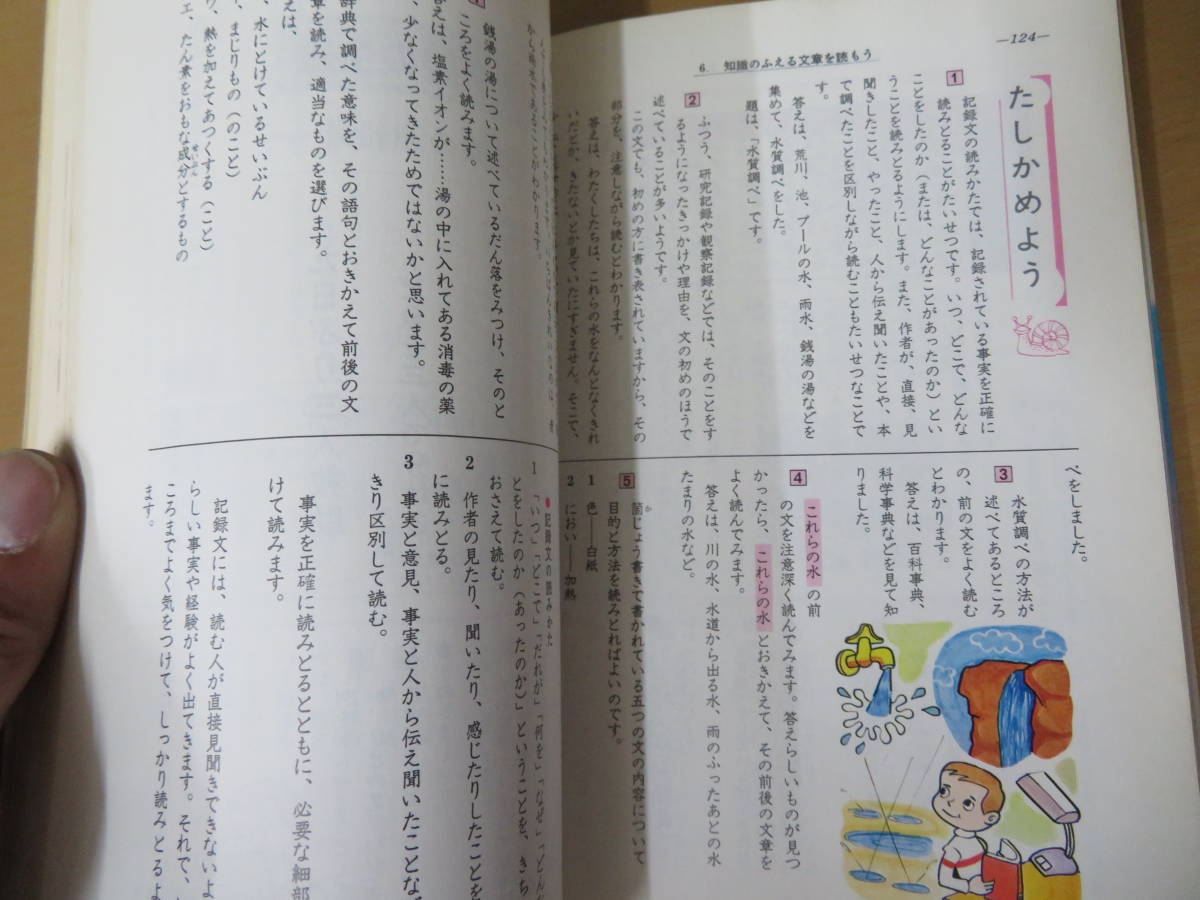 —124—
6. 知識のふえる文章を読もう
たしかめよう
1 記録文の読みかたでは、記録されている事実を正確に
読みとることがたいせつです。いつ、どこで、どんな
ことをしたのか(または、どんなことがあったのか)とい
うことを読みとるようにします。また、作者が、直接、見
聞きしたこと、やったこと、人から伝え聞いたことや、本
で調べたことを区別しながら読むこともたいせつなことで
す。
答えは、荒川、池、プールの水、雨水、銭湯の湯などを
集めて、水質調べをした。
題は、「水質調べ」です。
2 ふつう、研究記録や観察記録などでは、そのことをす
るようになったきっかけや理由を、文の初めのほうで
述べていることが多いようです。
この文でも、初めの方に書き表されていますから、その
部分を、注意しながら読むとわかります。
答えは、わたくしたちは、これらの水をなんとなくきれ
いだとか、きたないとか見ていたにすぎません。そこで、
べをしました。
3 水質調べの方法が
述べてあるところ
の、前の文をよく読む
とわかります。
答えは、百科事典、
科学事典などを見て知
りました。
4 これらの水 の前
の文を注意深く読んでみます。答えらしいものが見つ
かったら、これらの水 とおきかえて、その前後の文章を
よく読んでみます。
答えは、川の水、水道から出る水、雨のふったあとの水
たまりの水など。
5 箇じょう書きで書かれている五つの文の内容について
目的と方法を読みとればよいのです。
1 色——白紙
2 におい——加熱
から雨水であることがわかります。
銭湯の湯について述べているだん落をみつけ、そのと
ころをよく読みます。
答えは、塩素イオンが……湯の中に入れてある消毒の薬
、少なくなってきたためではないかと思います。
辞典で調べた意味を、その語句とおきかえて前後の文
章を読み、適当なものを選びます。
えは、
水にとけているせいぶん
、まじりもの(のこと)
、熱を加えてあつくする(こと)
エ、たん素をおもな成分とするもの
●記録文の読みかた
1 「いつ」「どこで」「だれが」「何を」「なぜ」「どん
とをしたのか(あったのか)」ということを、きち
おさえて読む。
2 作者の見たり、聞いたり、感じたりしたことを
に読みとる。
3 事実と意見、事実と人から伝え聞いたことな
きり区別して読む。
事実を正確に読みとるとともに、必要な細部
けて読みます。
記録文には、読む人が直接見聞きできないよ
らしい事実や経験がよく出てきます。それで、
ころまでよく気をつけて、しっかり読みとるよ
ます。